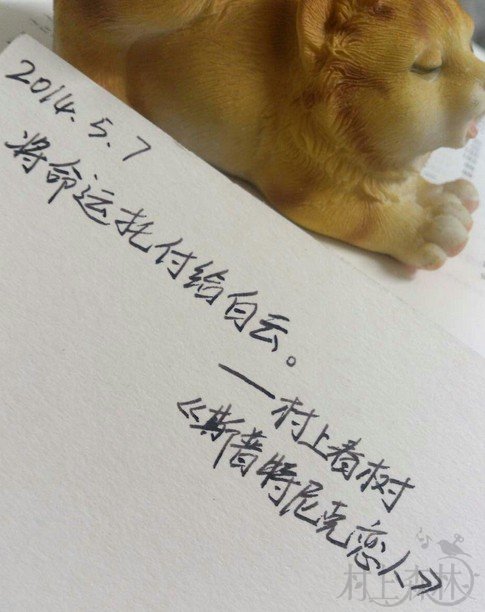 2014.5.7
将命运托付给白云。
——村上春树
《斯普特尼克恋人》
村上森林